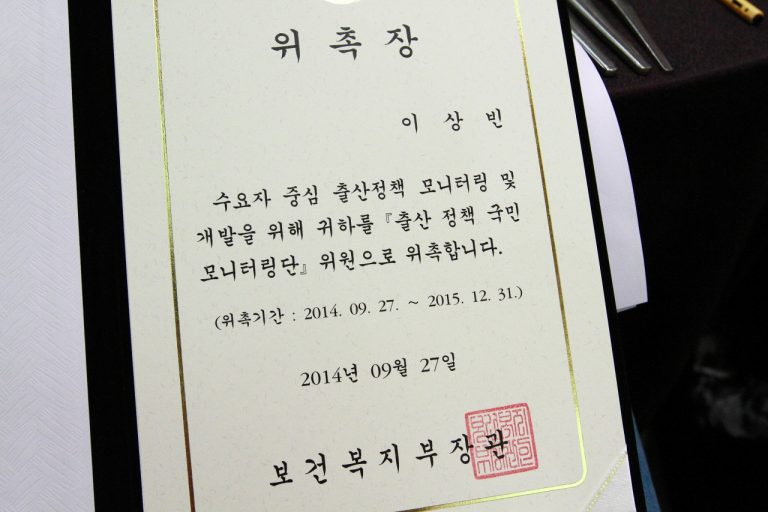 위 촉 장
이 상 빈
수요자 중심 출산정책 모니터링 및
개발을 위해 귀하를 『출산 정책 국민
모니터링단』 위원으로 위촉합니다.
(위촉기간 : 2014. 09. 27. ~ 2015. 12. 31.)
2014년 09월 27일
보건복지부장관